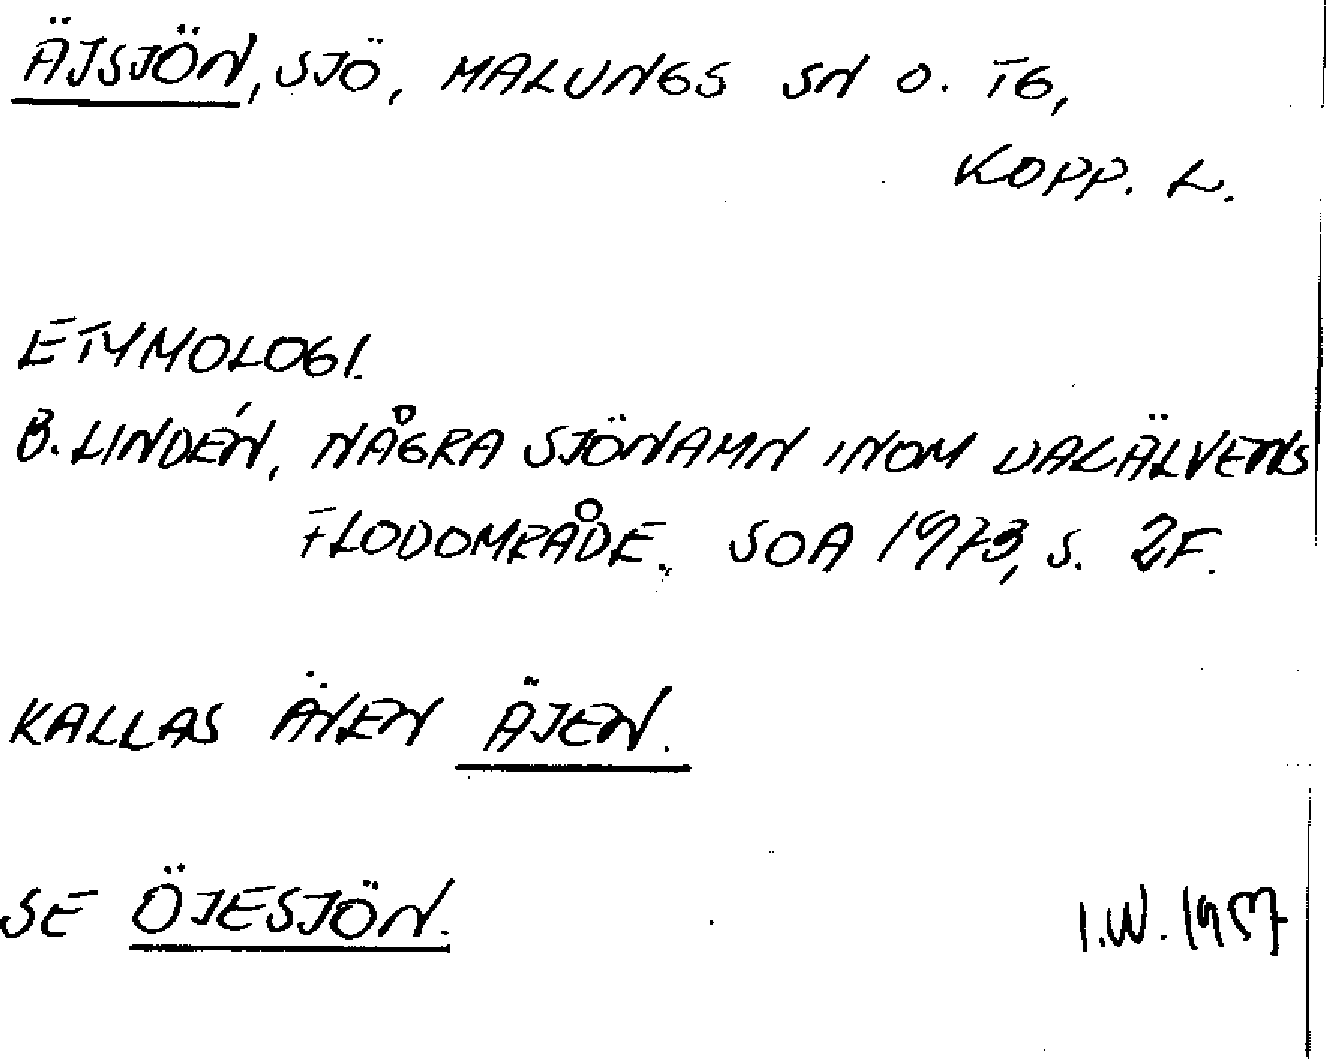 ÄJSJÖN, SJÖ, MALUNGS SN O. TG,
KOPP. L.
ETYMOLOGI.
B. LINDÉN, NÅGRA SJÖNAMN INOM DALÄLVENS
FLODOMRÅDE. SOA 1973, S. 2F.
KALLAS ÄVEN ÄJEN.
SE ÖJESJÖN.
I.W. 1957